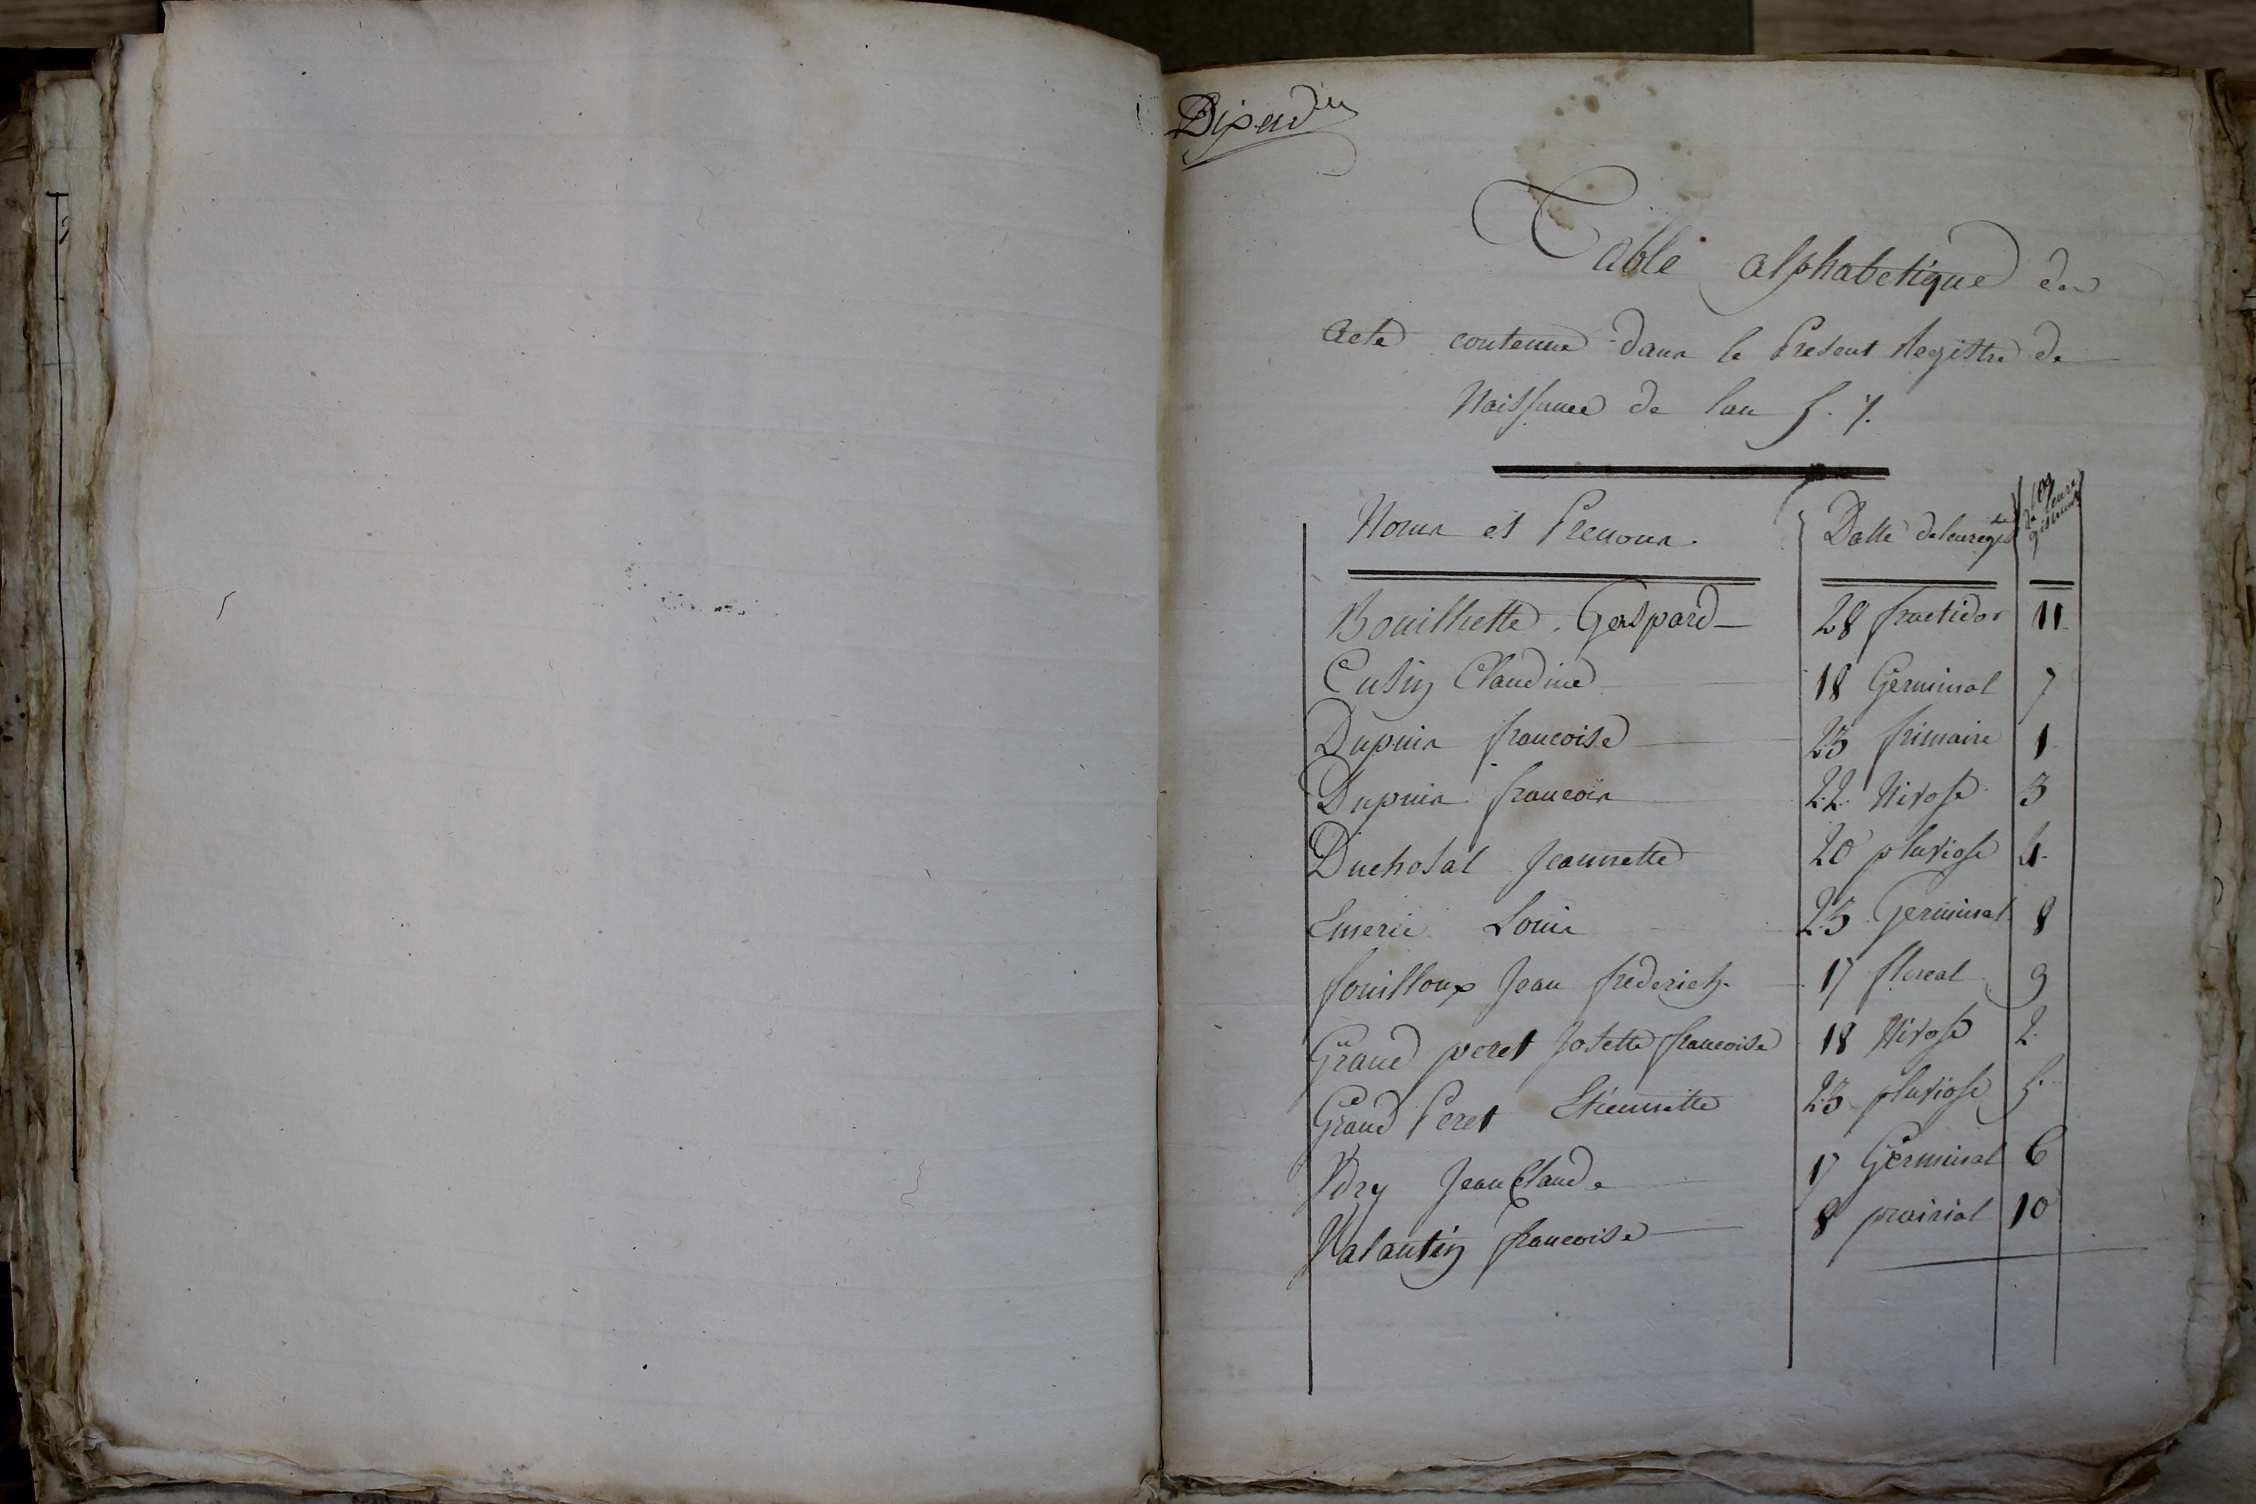 Table alphabetique des
acte contenue dans le Present Registre de
Naissance de lan
Noms et Prenoms. Datte de leur
Bouilhette Gaspard 28 fructidor 11
Cusin Claudine 18 Germinal 7
Dupuis francoise 23 frimaire 1
Dupuis francois 22 Nivose 3
Duchosal Jeannette 20 pluviose 4
Emerie Louis 25 Germinal 8
fouilloux Jean frederich 17 floreal 9
Grand peret Josette francoise 18 Nivose 2
Grand Peret Etiennette 23 pluviose 5
Vdry Jean Claude 17 Germinal 6
Valantin francoise 8 prairial 10